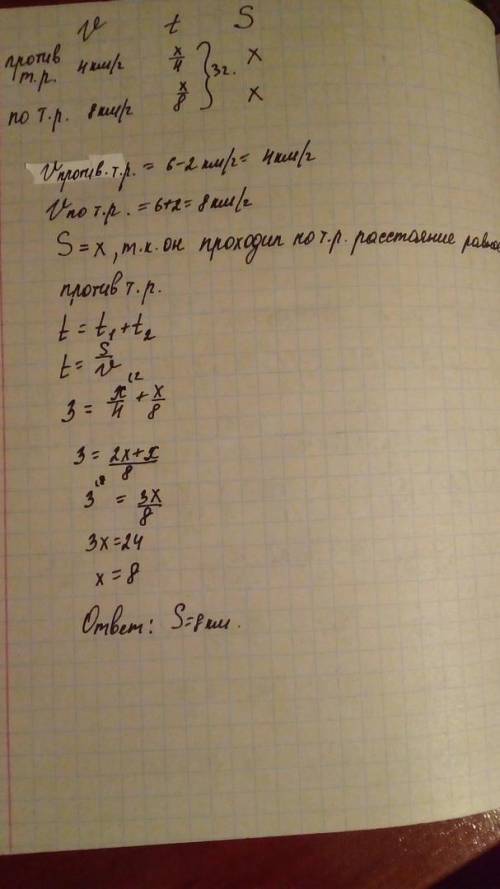 v t S
против т.р. 4км/г x/4 } 3г. x
по т.р. 8км/г x/8 x
Vпротив.т.р. = 6-2км/г= 4км/г
Vпо т.р. =6+2=8км/г
S=x, т.к. он проходил по т.р. расстояние
против т.р.
t=t₁+t₂
t=S/v
3= x/4 ^{\2} + x/8
3= (2x+x)/8
3 ^{\8} = 3x/8
3x=24
x=8
Ответ: S=8км.